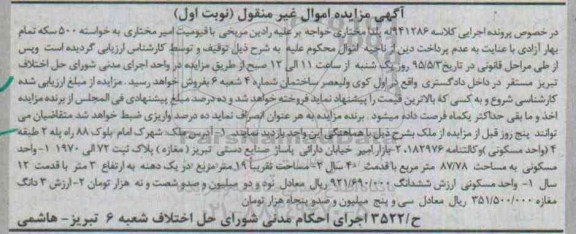 آگهی مزایده اموال غیر منقول (نوبت اول)
در خصوص پرونده اجرایی کلاسه ۹۴۱۲۸۶ له یلدا مختاری خواجه بر علیه رادین مریخی با قیومیت امیر مختاری به خواسته ۵۰۰ سکه تمام
بهار آزادی با عنایت به عدم پرداخت دین از ناحیه اموال محکوم علیه به شرح ذیل توقیف و توسط کارشناس ارزیابی گردیده است وپس
از طی مراحل قانونی در تاریخ ۹۵/۵/۳ روز یک شنبه از ساعت ۱۱ الی ۱۲ صبح از طریق مزایده در واحد اجرای مدنی شورای حل اختلاف
تبریز مستقر در داخل دادگستری واقع در اول کوی ولیعصر ساختمان شماره ۴ شعبه ۶ بفروش خواهد رسید. مزایده از مبلغ ارزیابی شده
کارشناسی شروع و به کسی که بالاترین قیمت را پیشنهاد نماید فروخته خواهد شد و ده درصد مبلغ پیشنهادی فی المجلس از برنده مزایده
اخذ و ما بقی حداکثر یکماه فرصت داده میشود. برنده مزایده به هر عنوان انصراف نماید ده درصد واریزی ضبط خواهد شد متقاضیان می
توانند پنج روز قبل از مزایده از ملک بشرح ذیل با هماهنگی این واحد بازدید نمایند. ۱- آدرس ملک: شهرک امام بلوک ۸۸ راه پله ۲ طبقه
۴ (واحد مسکونی) وکالتنامه ۱۸۲۹۷۶. ۲- بازار امیر خیابان دارائی پاساژ صنایع دستی تبریز (مغازه) پلاک ثبت ۷۲ الی ۱۹۷۰ ۱- واحد
مسکونی به مساحت ۸۷/۷۸ متر مربع با قدمت ۴۰ سال ۲- مساحت تقریباً ۱۹ متر مربع در یک دهنه به ارتفاع ۳ متر با قدمت ۱۲
سال ۱- واحد مسکونی ارزش ششدانگ ۹۲۱/۶۹۰/۰۰۰ ریال معادل نود و دو میلیون و صدو شصت و نه هزار تومان ۲- ارزش ۳ دانگ
مغازه ۳۵۱/۵۰۰/۰۰۰ ریال معادل سی و پنج میلیون و صدو پنجاه هزار تومان
ح/۳۵۲۲ اجرای احکام مدنی شورای حل اختلاف شعبه ۶ تبریز- هاشمی